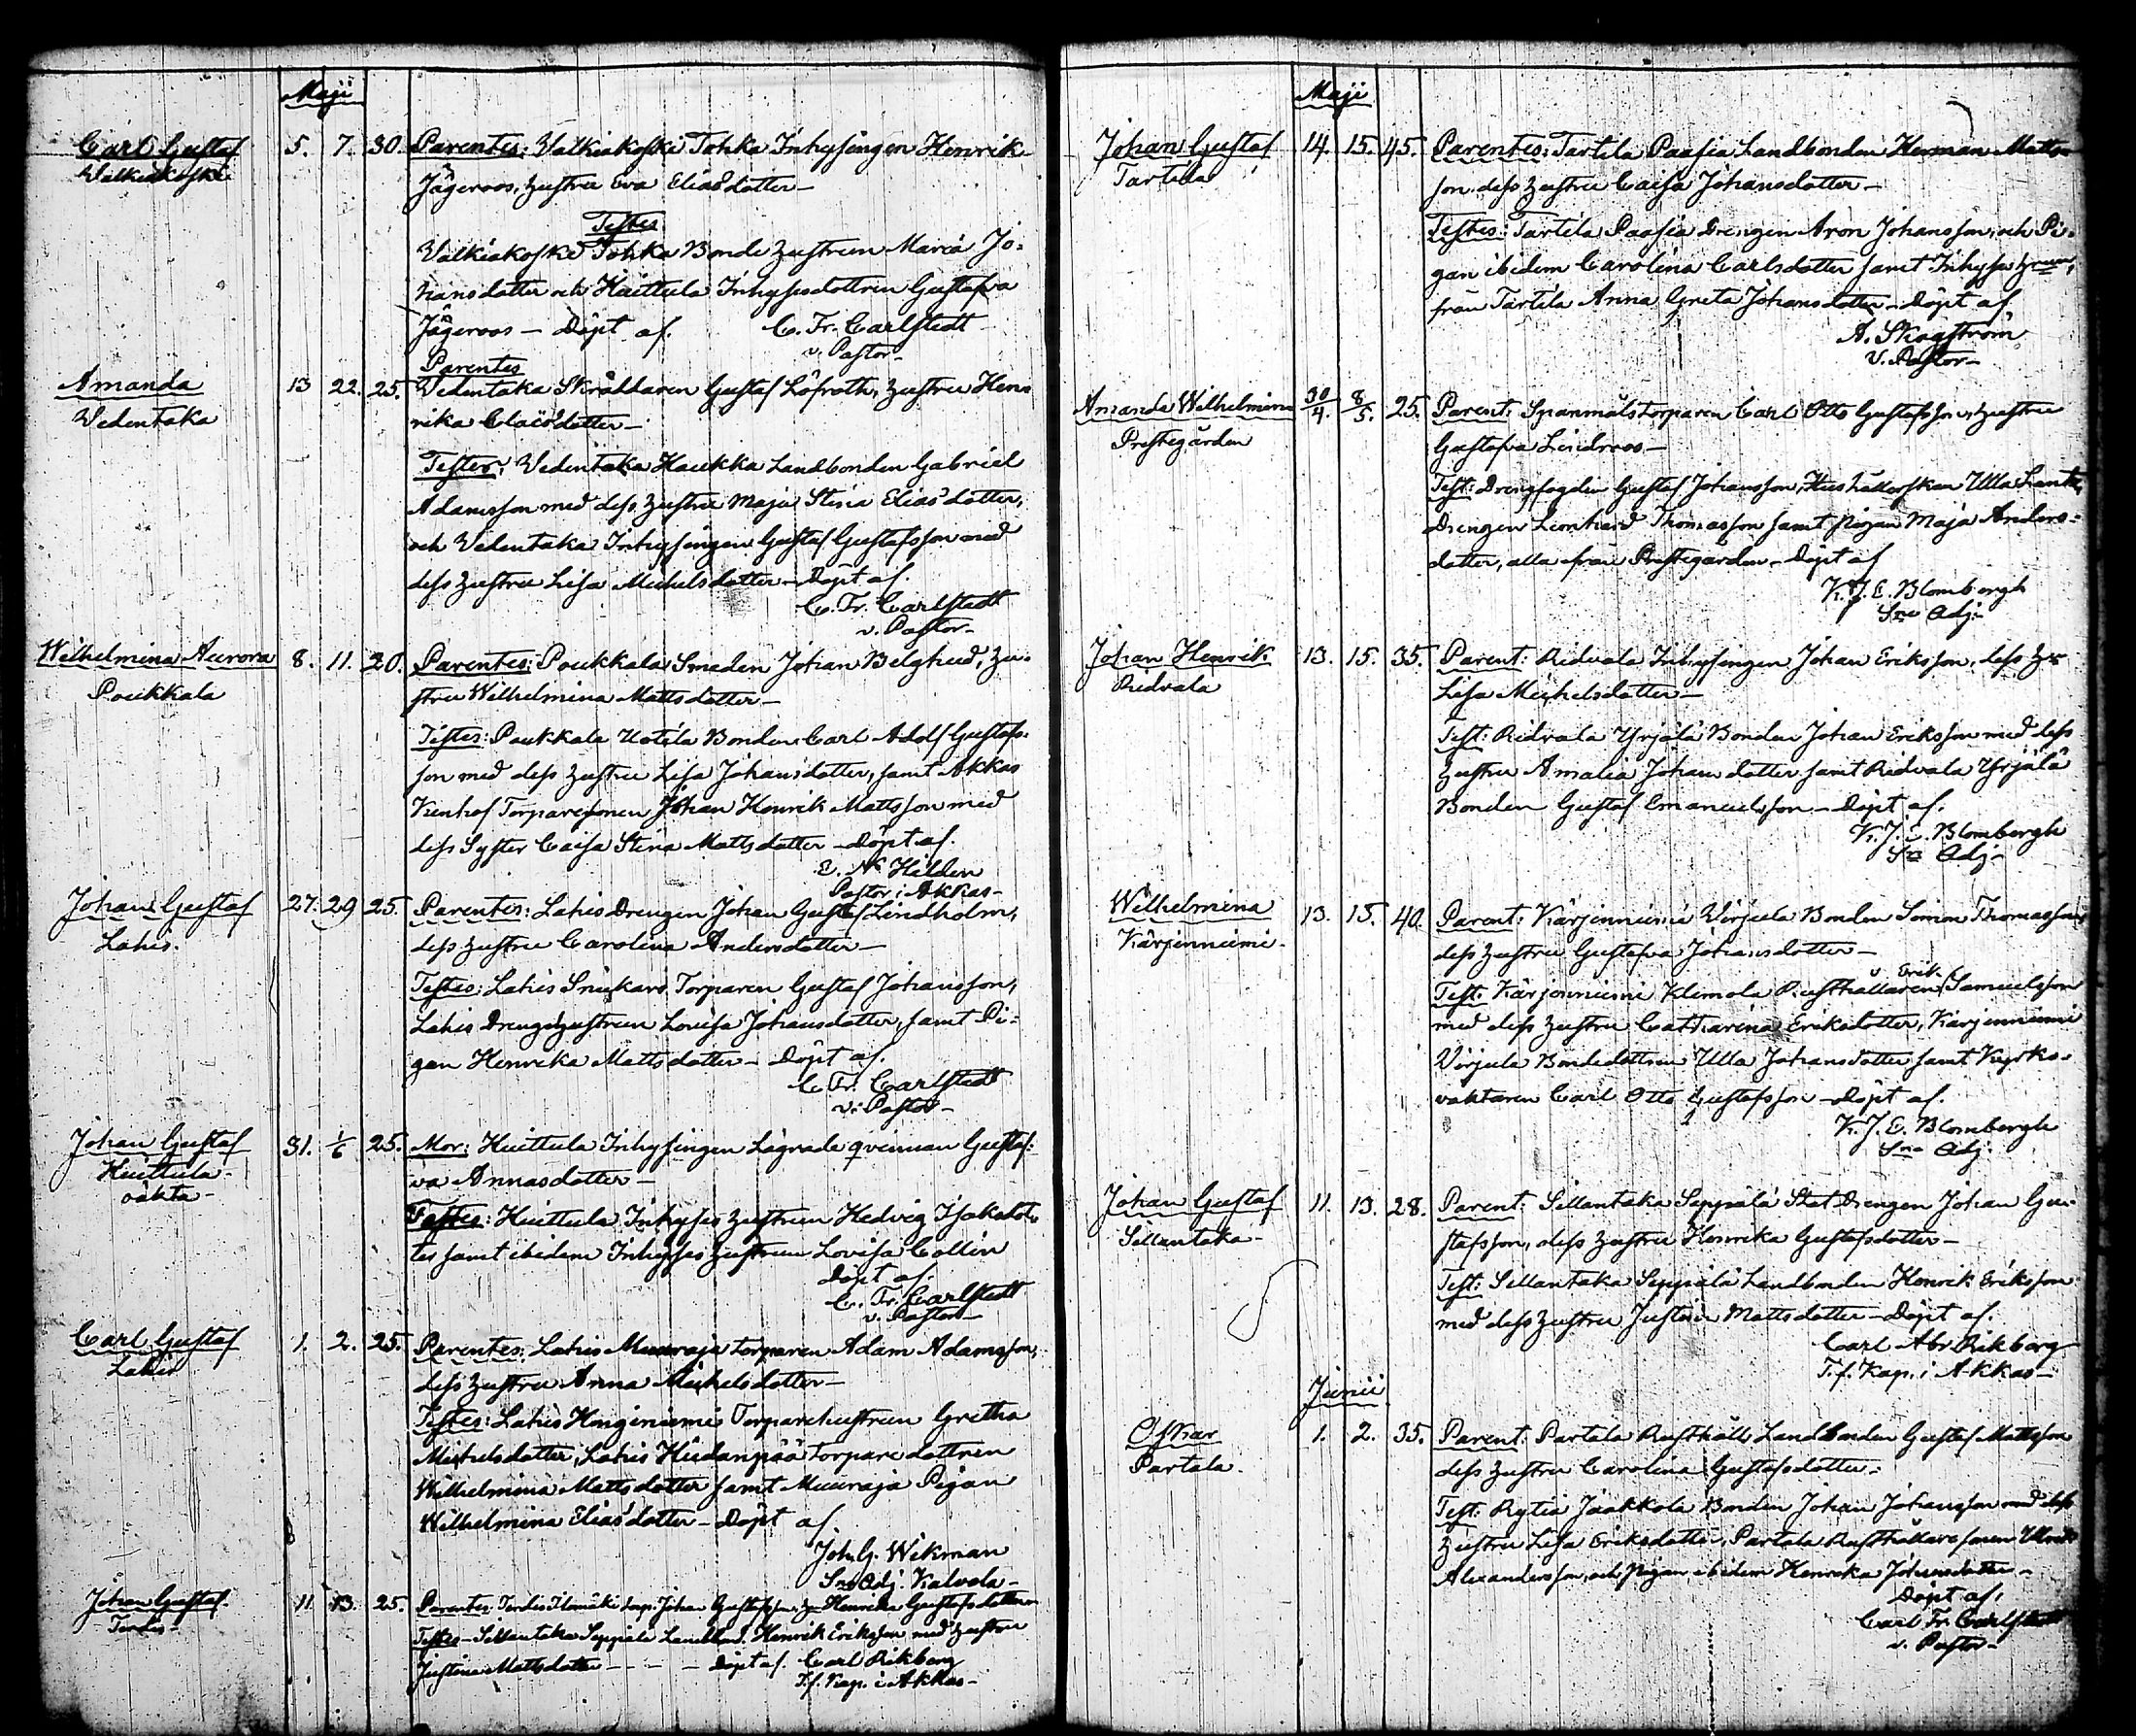 Maji
Carl Gustaf 5. 7. 30. Parentes: Walkiakoski Tohka Inhysingen Henrik
Walkiakoski Jägeroos, hustru Eva Eliasdotter —
Testes
Walkiakoski Tohka Bonde hustrun Maria Jo-
hansdotter och Huittula Inhysesdottren Gustafva
Jägeroos — Döpt af. C. Fr. Carlstedt
v. Pastor —
Parentes
Amanda 13 22. 25. Wedentaka Skräddaren Gustaf Löfroth, hustru Hen-
Wedentaka rika Claësdotter —
Testes: Wedentaka Haukka Landbonden Gabriel
Adamsson med dess hustru Maja Stina Eliasdotter,
och Wedentaka Inhysingen Gustaf Gustafsson med
dess hustru Lisa Michelsdotter — Döpt af.
C. Fr. Carlstedt
v. Pastor —
Wilhelmina Aurora 8. 11. 20. Parentes: Poukkala Smeden Johan Belghud, hu-
Poukkala stru Wilhelmina Mattsdotter —
Testes: Poukkala Uotila Bonden Carl Adolf Gustafs-
son med dess hustru Lisa Johansdotter, samt Akkas
Torparesonen Johan Henrik Mattsson med
dess Syster Caisa Stina Mattsdotter — Döpt af.
E. N. Helden
Pastor i Akkas —
Johan Gustaf 27. 29 25. Parentes: Lahis Drengen Johan Gustaf Lindholm,
Lahis. dess hustru Carolina Andersdotter —
Testes: Lahis Snickars Torparen Gustaf Johansson,
Lahis Drengshustrun Lovisa Johansdotter, samt Pi-
gan Henrika Mattsdotter — Döpt af.
C. Fr. Carlstedt
v. Pastor —
Johan Gustaf 31. 1/6 25. Mor: Huittula Inhysingen Lägrade qvinnan Gustaf-
Huittula va Annasdotter —
oäkta —
Testes: Huittula Inhyses hustrun Hedvig Isaksdot-
ter samt ibidem Inhyses hustrun Lovisa Collin
Döpt af.
C. Fr. Carlstedt
v. Pastor —
Carl Gustaf 1. 2. 25. Parentes: Lahis Muuraja torparen Adam Adamsson,
Lahis dess hustru Anna Michelsdotter —
Testes: Lahis Honginiemi Torparehustrun Gretha
Michelsdotter, Lahis Hiidanpää torpare dottren
Wilhelmina Mattsdotter samt Muuraja Pigan
Wilhelmina Eliasdotter — Döpt af
Joh. G. Wikman
Sne Adj. Kalvola —
Johan Gustaf. 11. 13. 25. Parentes Johan Gustafsson, Henrika Gustafsdotter
Testes — Sillantaka Seppälä Landbond. Henrik Eriksson med hustru
Justina Mattsdotter — — — Döpt af. Carl Rikberg
T.f. Kap. i Akkas —
Maji
Johan Gustaf 14. 15. 45. Parentes: Tartila Paasia Landbonden Herman Matts-
Tartila son, dess hustru Caisa Johansdotter —
Testes: Tartila Paasia Drengen Aron Johansson, och Pi-
gan ibidem Carolina Carlsdotter samt Inhyses
från Tartila Anna Greta Johansdotter — Döpt af
A. Skogström
V. Pastor —
Amanda Wilhelmina 30/4. 8/5. 25. Parent: Spanmålstorparen Carl Otto Gustafsson, hustru
Prestegården Gustafva Lindroos —
Test: Drengfogden Gustaf Johansson, Hushållerskan Ulla
Drengen Leonhard Thomasson samt pigan Maja Anders-
dotter, alla från Prestegården — Döpt af
K. J. E. Blombergh
Sne Adj:
Johan Henrik 13. 15. 35. Parent: Ridvala Inhysingen Johan Eriksson, dess hu
Ridvala Lisa Michelsdotter —
Test: Ridvala Yrjälä Bonden Johan Eriksson med dess
hustru Amalia Johansdotter samt Ridvala Yrjälä
Bonden Gustaf Emanuelsson — Döpt af.
K. J. E. Blombergh
Sne Adj —
Wilhelmina 13. 15. 40. Parent: Kärjenniemi Wirjula Bonden Simon Thomasson,
Kärjenniemi — dess hustru Gustafva Johansdotter —
Erik
Test: Kärjenniemi Klemola Rusthållaren Samuelsson
med dess hustru Catharina Eriksdotter, Kärjenniemi
Wirjula Bondedottren Ulla Johansdotter samt Kyrko-
vaktaren Carl Otto Gustafsson — Döpt af.
K. J. E. Blombergh
Sne Adj.
Johan Gustaf 11. 13. 28. Parent: Sillantaka Seppälä Stat Drengen Johan Gu-
Sillantaka — stafsson, dess hustru Henrika Gustafsdotter —
Test: Sillantaka Seppälä Landbonden Henrik Eriksson
med dess hustru Justina Mattsdotter — Döpt af.
Carl Abr Rikberg
T.f. Kap. i Akkas —
Junii
Oskar 1. 2. 35. Parent: Partala Rusthålls Landbonden Gustaf Mattsson
Partala. dess hustru Carolina Gustafsdotter —
Test: Rytiä Jaakkola Bonden Johan Johansson med dess
hustru Lisa Eriksdotter, Partala Rusthållaresonen Ulrik
Alexandersson, och pigan ibidem Henrika Johansdotter —
Döpt af.
Carl Fr. Carlstedt
v. Pastor —